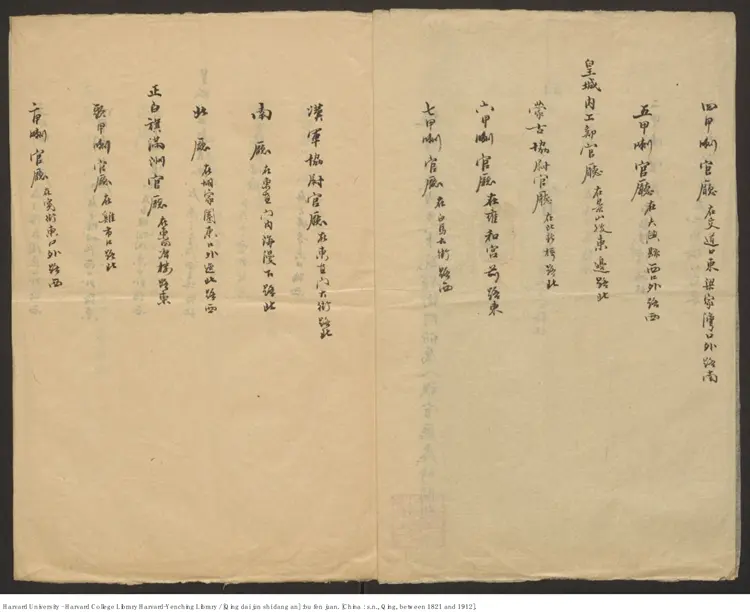 四甲喇官廳在交道口東梁家灣口外路南
五甲喇官廳在大興縣西口外路西
皇城内工部官廳在景山後東邊路北
蒙古協尉官廳在北新橋路北
六甲喇官廳在雍和宮前路東
七甲喇官廳在白馬大街路西
漢軍協尉官廳在東直門大街路北
南廳在東直門内海漫下路北
北廳在胡家園東口外迤北路西
正白旗滿洲官廳在東四牌樓路東
頭甲喇官廳在雞市口路北
二甲喇官廳在街東口外路西
Harvard University - Harvard College Library Harvard-Yenching Library / [Qing dai jun shi dang an] :bu fen juan. [China : s.n., Qing, between 1821 and 1912].